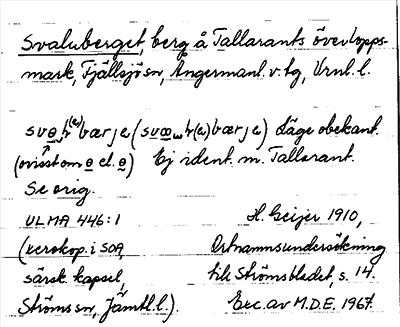 Svaluberget, berg å Tallarants överlopps-
mark, Fjällsjö sn, Ångermanl. v. tg, Vrnl. l.
Läge obekant.
(ovisst om ꬲ el. ꬲ) Ej ident. m. Tallarant.
Se orig.
ULMA 446:1 H. Geijer 1910,
(xerokop. i SOA, Ortnamnsundersökning
särsk. kapsel, till Strömsbladet, s. 14.
Ströms sn, Jämtl. l.). Exc. av M.D.E. 1967.